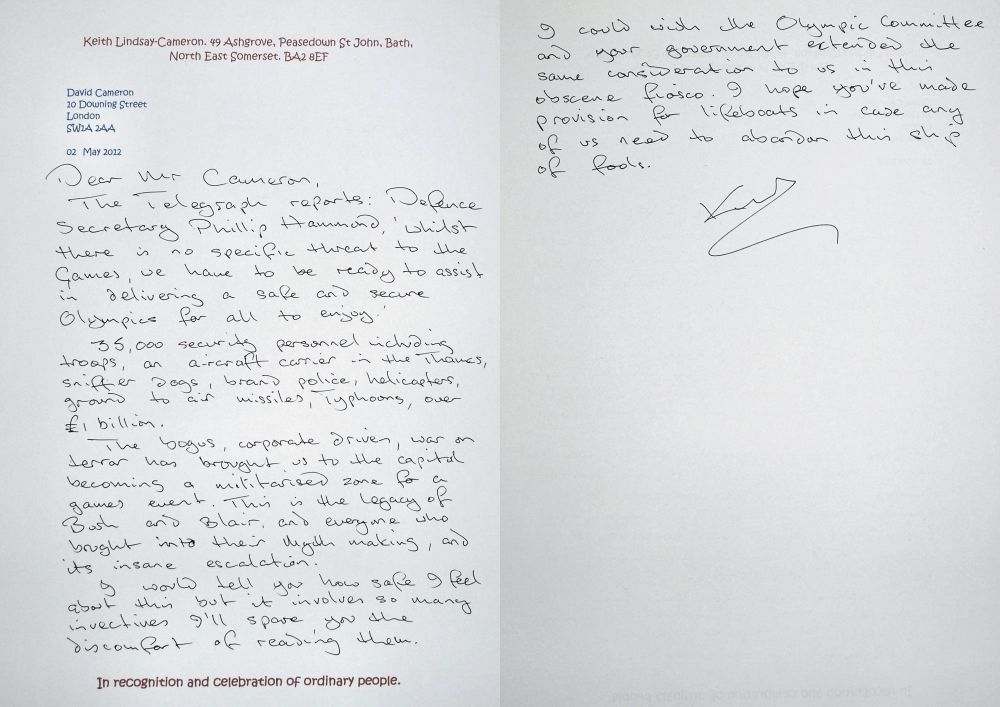 Keith Lindsay-Cameron. 49 Ashgrove, Peasedown St John, Bath,
North East Somerset. BA2 8EF
David Cameron
10 Downing Street
London
SW1A 2AA
02 May 2012
Dear Mr Cameron,
The Telegraph reports: Defence
Secretary Phillip Hammond, 'whilst
there is no specific threat to the
Games, we have to be ready to assist
in delivering a safe and secure
Olympics for all to enjoy.'
35,000 security personnel including
troops, an aircraft carrier in the Thames,
sniffer dogs, brand police, helicopters,
ground to air missiles, Typhoons, over
£1 billion.
The bogus, corporate driven, war on
terror has brought us to the capitol
becoming a militarised zone for a
games event. This is the legacy of
Bush and Blair, and everyone who
bought into their myth making, and
its insane escalation.
I would tell you how safe I feel
about this but it involves so many
invectives I'll spare you the
discomfort of reading them.
In recognition and celebration of ordinary people.
I could wish the Olympic Committee
and your government extended the
same consideration to us in this
obscene fiasco. I hope you've made
provision for lifeboats in case any
of us need to abandon this ship
of fools.